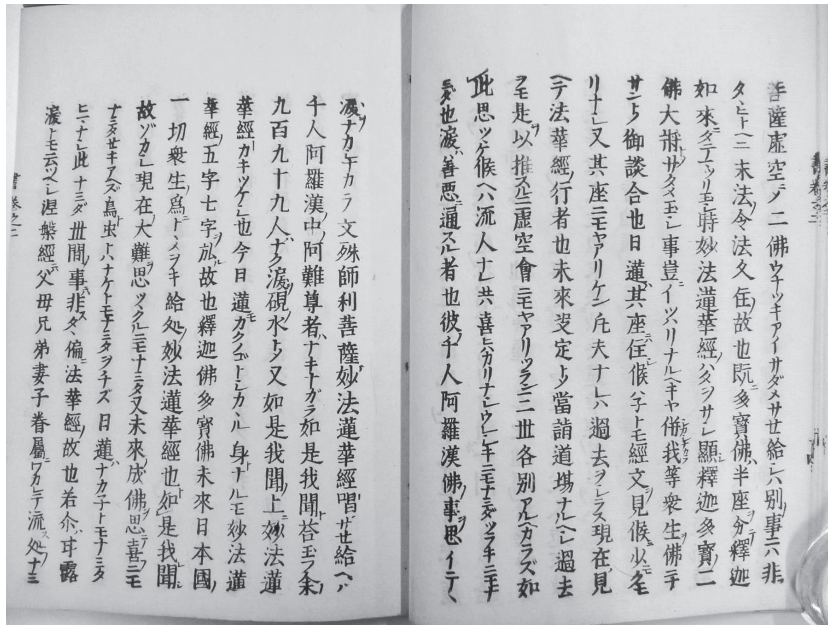 菩薩虛空ノ二佛ウチツキアイサダメサセ給シハ別ノ事ニハ非
タヽヒトヘニ末法ノ令法久住ノ故也既ニ多寳佛ハ半座ヲ分テ釋迦
如來ニタテマツリ玉シ時妙法蓮華經ノハタヲサシ顯シ釋迦多寳ノ二
佛大將トシテサタメ玉シ事豈イツハリナルヘキヤ併ラ我等衆生ヲ佛ニ
サントノ御談合也日蓮ハ其座ニハ住シ候ハ子トモ經文ヲ見候ニ少モ
リナシ又其座ニモヤアリケン凡夫ナレハ過去ヲシラス現在ハ見
ヘテ法華經ノ行者也未來ハ又決定トシテ當詣道場ナルヘシ過去
ヲモ是ヲ以テ推スルニ虛空會ニモヤアリツラン三世各別アルヘカラズ如
此思ヒツヽケテ候ヘハ流人ナレ共喜ヒハカリナシウレシキニモナミダツラキニモナ
ミダ也淚ハ善惡ニ通スル者也彼ノ千人ノ阿羅漢佛ノ事ヲ思イテヽ
淚ヲナカシナカラ文殊師利菩薩ハ妙法蓮華經ト唱サセ給ヘハ
千人ノ阿羅漢ノ中ノ阿難尊者ハナキナガラ如是我聞ト荅玉フ余ノ
九百九十九人ハナク淚ヲ硯ノ水トシテ又如是我聞ノ上ニ妙法蓮
華經トカキツケシ也今日蓮モカクノゴトシカヽル身トナルモ妙法蓮
華經ノ五字七字ヲ弘ル故也釋迦佛多寳佛未來日本國ノ
一切衆生ノ爲ニトヽメヲキ給処ノ妙法蓮華經也ト如是我モ聞シ
故ゾカシ現在ノ大難ヲ思ツヽクルニモナミタ又未來ノ成佛ヲ思テ喜ニモ
ナミタセキアヘズ鳥ト虫トハナケトモナミタヲチズ日蓮ハナカ子トモナミタ
ヒマナシ此ナミダ世間ノ事ニハ非スタヽ偏ニ法華經ノ故也若尓ハ甘露ノ
淚トモ云ツヘシ涅槃經ニハ父母兄弟妻子眷屬ニワカレテ流ス処ノ
書卷之二